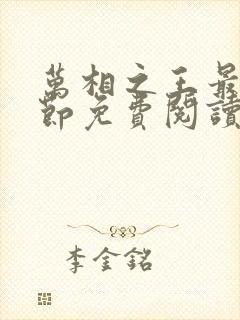 萬相之王最
節免費閱讀
李金銘